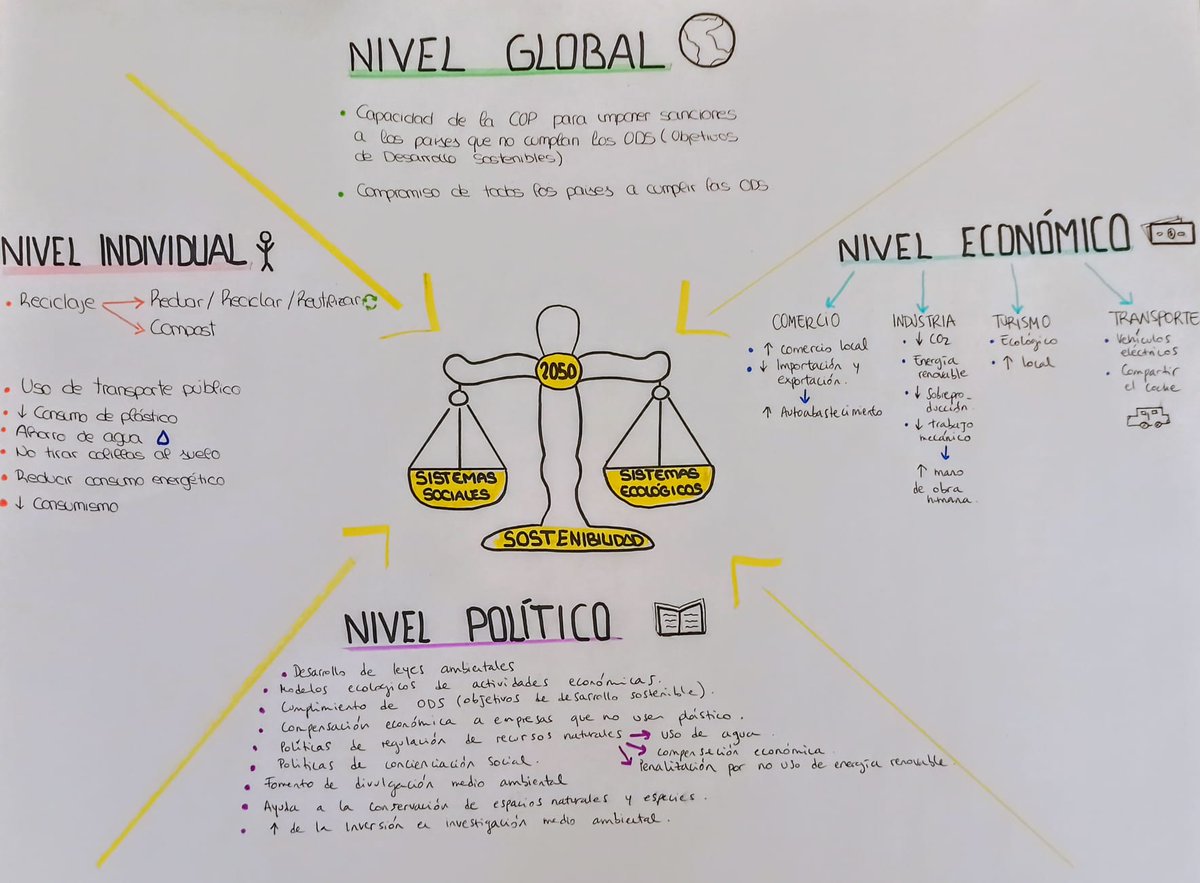 NIVEL GLOBAL
• Capacidad de la COP para imponer sanciones
a los países que no cumplan los ODS (Objetivos
de Desarrollo Sostenibles)
• Compromiso de todos los países a cumplir las ODS
NIVEL INDIVIDUAL
• Reciclaje → Reducir / Reciclar / Reutilizar
→ Compost
• Uso de transporte público
• ↓ Consumo de plástico
• Ahorro de agua
• No tirar colillas al suelo
• Reducir consumo energético
• ↓ Consumismo
NIVEL ECONÓMICO
COMERCIO
• ↑ comercio local
• ↓ Importación y
exportación.
↓
↑ Autoabastecimiento
INDUSTRIA
• ↓ CO2
• Energía
renovable
• ↓ Sobrepro-
ducción.
• ↓ trabajo
mecánico
↓
↑ mano
de obra
humana.
TURISMO
• Ecológico
• ↑ local
TRANSPORTE
• Vehículos
eléctricos
• Compartir
el coche
2050
SISTEMAS
SOCIALES
SISTEMAS
ECOLÓGICOS
SOSTENIBILIDAD
NIVEL POLÍTICO
• Desarrollo de leyes ambientales
• Modelos ecológicos de actividades económicas.
• Cumplimiento de ODS (objetivos de desarrollo sostenible).
• Compensación económica a empresas que no usen plástico.
• Políticas de regulación de recursos naturales → uso de agua.
→ compensación económica.
→ Penalitación por no uso de energía renovable.
• Políticas de concienciación social.
• Fomento de divulgación medio ambiental
• Ayuda a la conservación de espacios naturales y especies.
• ↑ de la inversión en investigación medio ambiental.